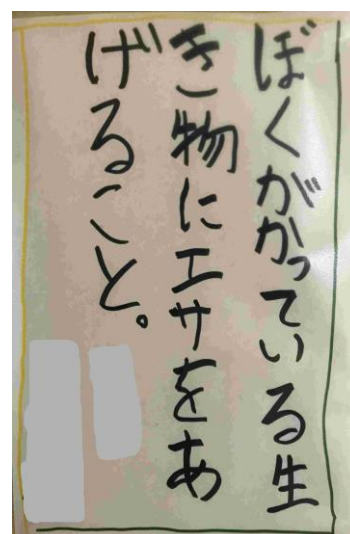 ぼくがかっている生
き物にエサをあ
げること。